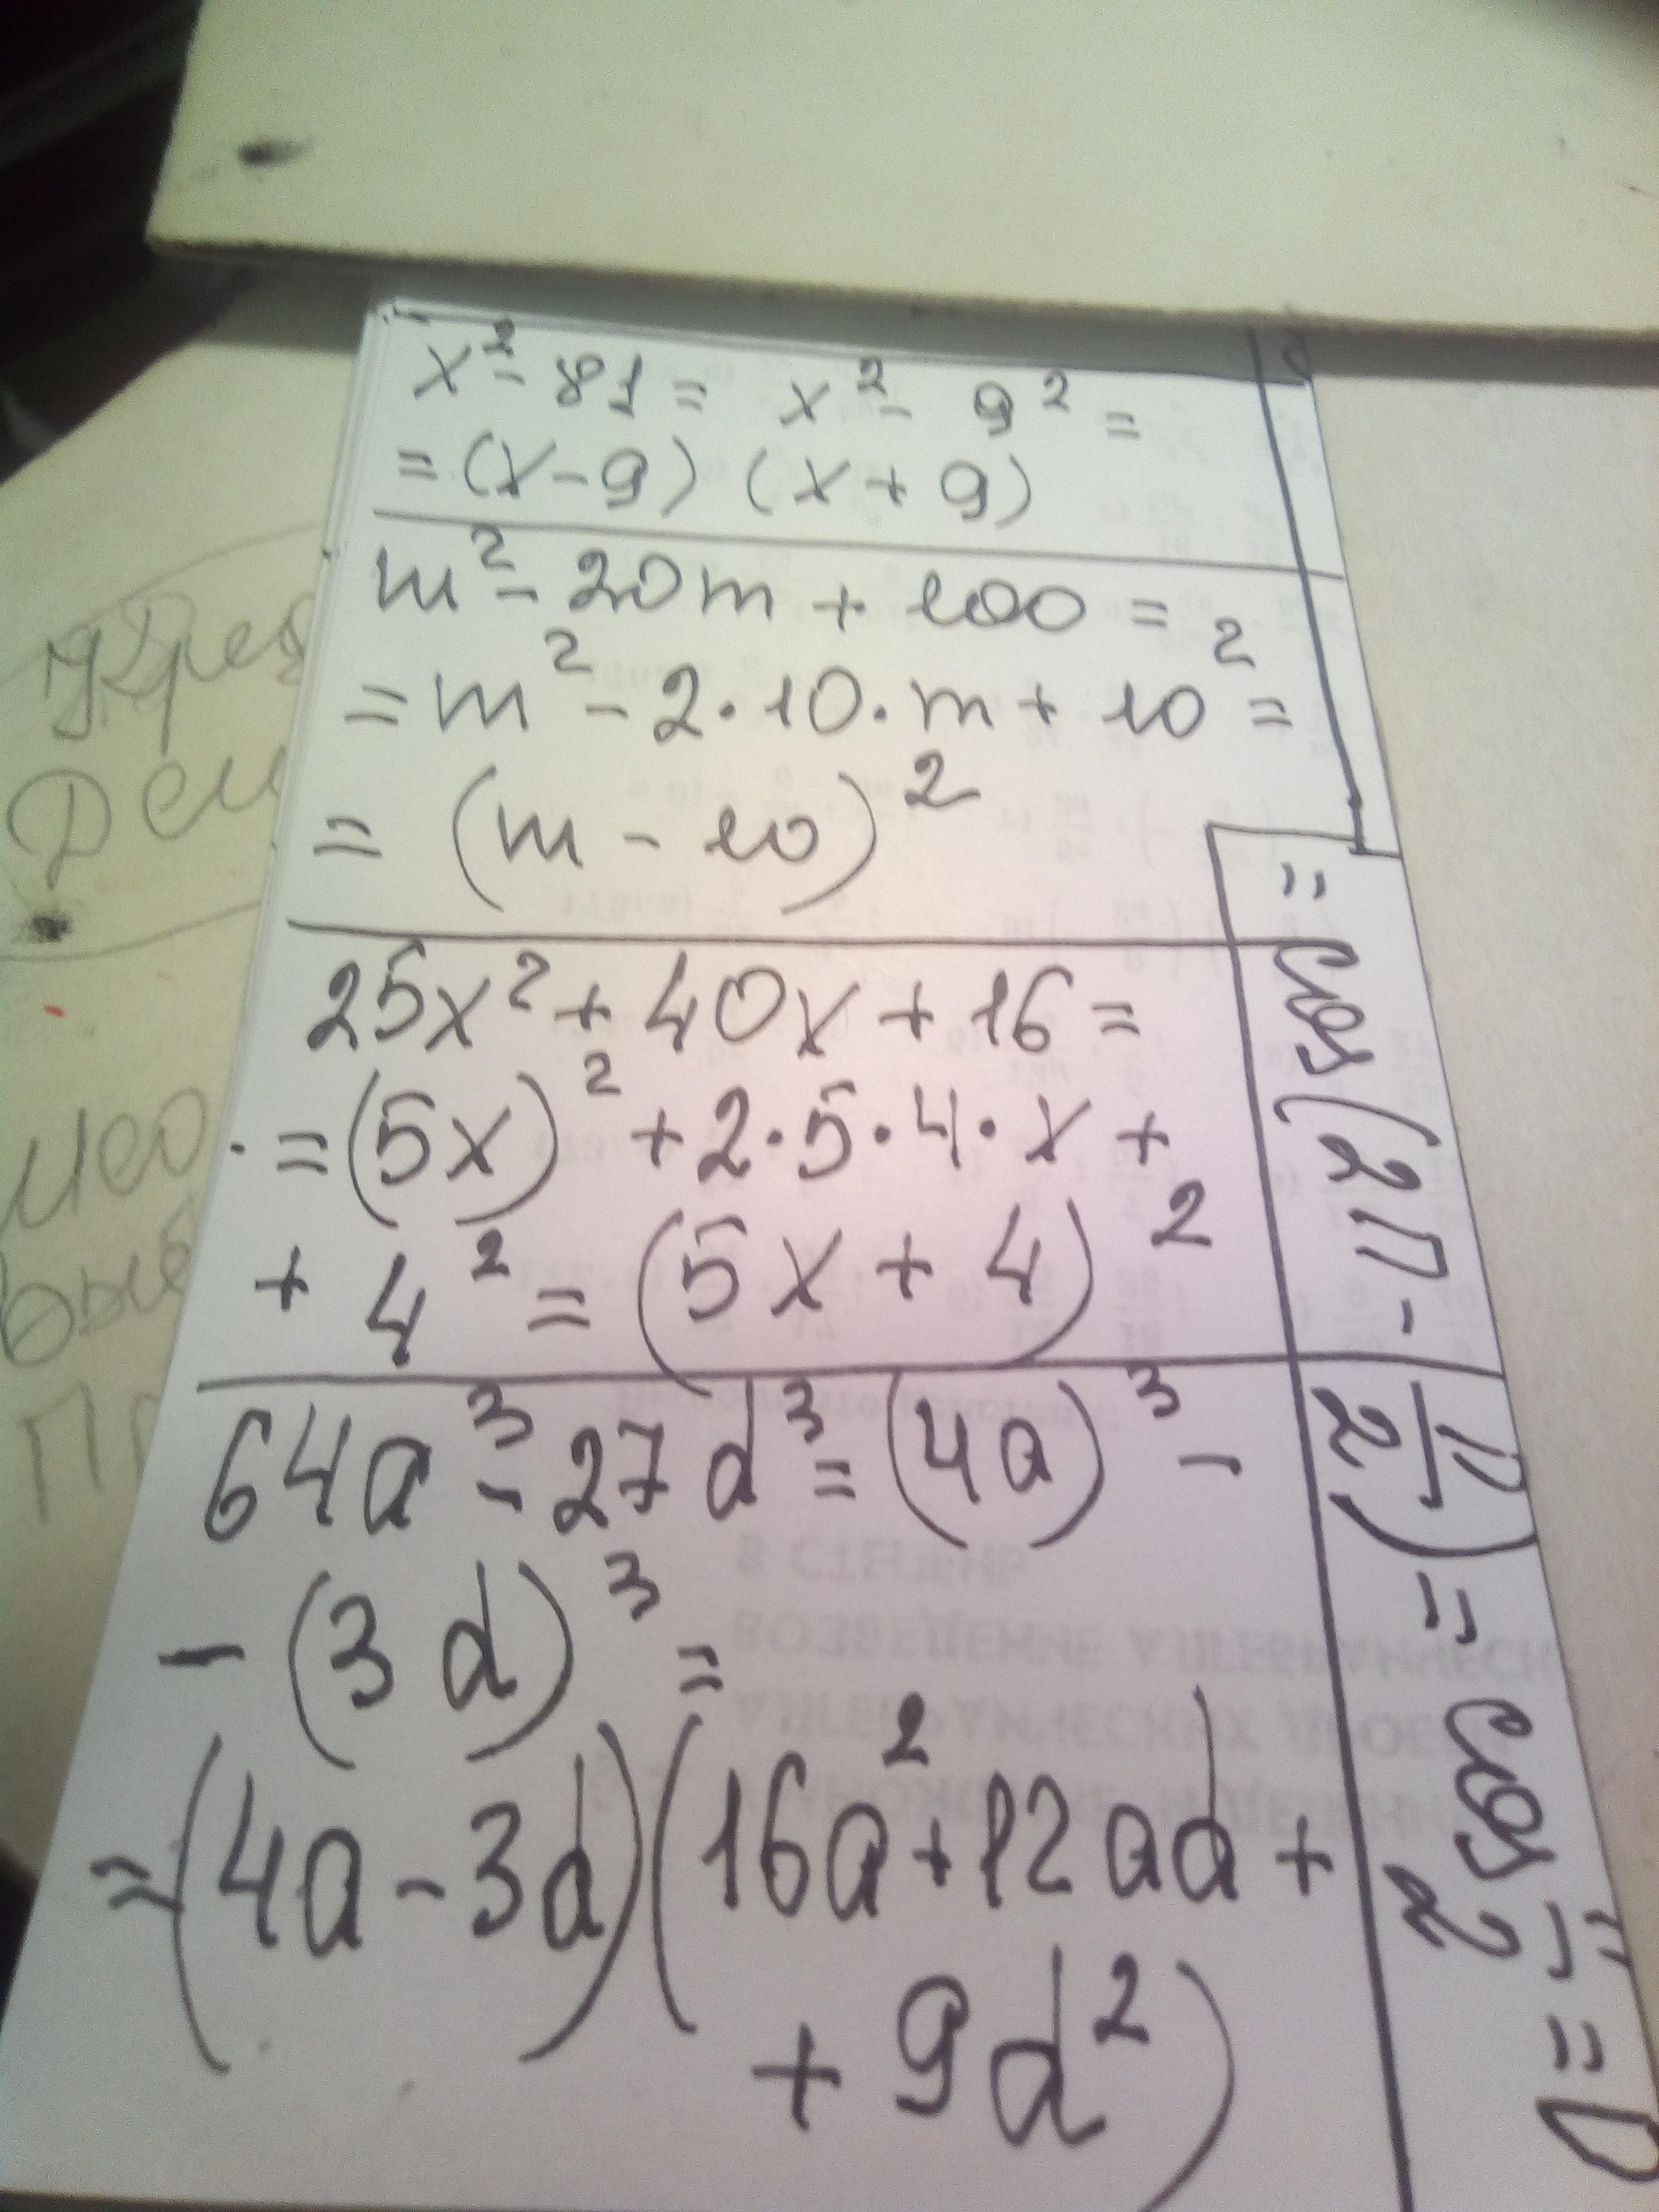 x² - 81 = x² - 9² =
= (x - 9) (x + 9)
m² - 20m + 100 =
= m² - 2·10·m + 10² =
= (m - 10)²
25x² + 40x + 16 =
= (5x)² + 2·5·4·x +
+ 4² = (5x + 4)²
64a³ - 27d³ = (4a)³ -
- (3d)³ =
= (4a - 3d)(16a² + 12ad +
+ 9d²)
= cos(2π - π/2) = cos π/2 = 0